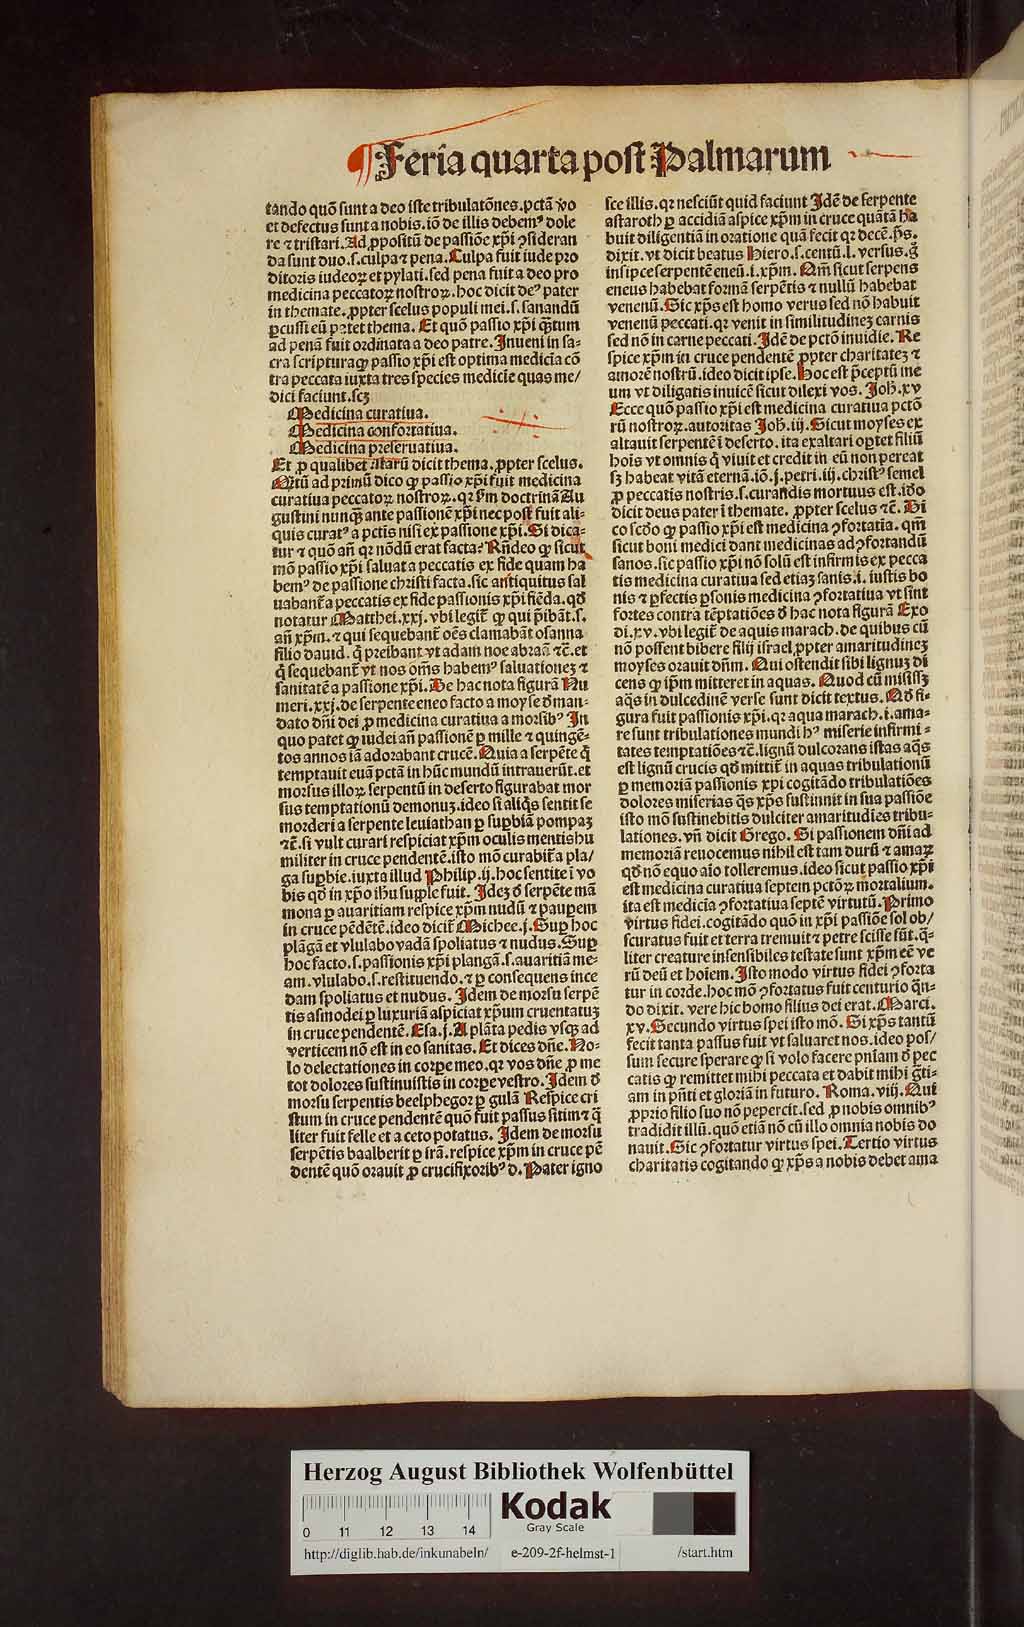 ¶ Feria quarta post Palmarum
tando quō sunt a deo iste tribulatōnes. pctā v̄o
et defectus sunt a nobis. iō de illis debemꝰ dole
re ⁊ tristari. Ad ꝓpositū de passiōe xp̄i ꝯsideran
da sunt duo. s. culpa ⁊ pena. Culpa fuit iude pro
ditoris iudeoꝝ et pylati. sed pena fuit a deo pro
medicina peccatoꝝ nostroꝝ. hoc dicit deꝰ pater
in themate. ꝓpter scelus populi mei. s. sanandū
ꝑcussi eū patet thema. Et quō passio xp̄i q̄tum
ad penā fuit ordinata a deo patre. Inueni in sa⸗
cra scriptura ꝙ passio xp̄i est optima medicīa cō
tra peccata iuxta tres species medicīe quas me/
dici faciunt. scꝫ
Medicina curatiua.
Medicina confortatiua.
Medicina preseruatiua.
Et ꝓ qualibet istarū dicit thema. ꝓpter scelus.
Q̄tū ad primū dico ꝙ passio xp̄i fuit medicina
curatiua peccatoꝝ nostroꝝ. qꝛ s̄m doctrinā Au
gustini nunqȝ ante passionē xp̄i nec post fuit ali⸗
quis curatꝰ a pctīs nisi ex passione xp̄i. Si dica⸗
tur ⁊ quō añ qꝛ nōdū erat facta? Rñdeo ꝙ sicut
mō passio xp̄i saluat a peccatis ex fide quam ha
bemꝰ de passione christi facta. sic antiquitus sal
uabant̄ a peccatis ex fide passionis xp̄i fiēda. qd̄
notatur Matthei. xxj. vbi legit̄ ꝙ qui p̄ibāt. s.
añ xp̄m. ⁊ qui sequebant̄ oēs clamabāt osanna
filio dauid. q̄ preibant vt adam noe abraā ⁊c̄. et
q̄ sequebant̄ vt nos om̄s habemꝰ saluationeȝ ⁊
sanitatē a passione xp̄i. De hac nota figurā Nu
meri. xxj. de serpente eneo facto a moyse ð man⸗
dato dn̄i dei ꝓ medicina curatiua a morsibꝰ In
quo patet ꝙ iudei añ passionē ꝑ mille ⁊ quingē⸗
tos annos iā adorabant crucē. Quia a serpēte q̄
temptauit euā pctā in hūc mundū intrauerūt. et
morsus illoꝝ serpentū in deserto figurabat mor
sus temptationū demonuȝ. ideo si aliq̄s sentit se
morderi a serpente leuiathan ꝑ suꝑbiā pompaȝ
⁊c̄. si vult curari respiciat xp̄m oculis mentis hu
militer in cruce pendentē. isto mō curabit̄ a pla/
ga suꝑbie. iuxta illud Philip. ij. hoc sentite ī vo
bis qd̄ in xp̄o ihū suꝓle fuit. Ideȝ ð serpēte mā
mona ꝑ auaritiam respice xp̄m nudū ⁊ pauꝑem
in cruce pēdētē. ideo dicit̄ Michee. j. Suꝑ hoc
plāgā et vlulabo vadā spoliatus ⁊ nudus. Suꝑ
hoc facto. s. passionis xp̄i plangā. s. auaritiā me⸗
am. vlulabo. s. restituendo. ⁊ ꝑ consequens ince
dam spoliatus et nudus. Idem de morsu serpē
tis asmodei ꝑ luxuriā aspiciat xp̄um cruentatuȝ
in cruce pendentē. Esa. j. A plāta pedis vsqȝ ad
verticem nō est in eo sanitas. Et dices dn̄e. No⸗
lo delectationes in corꝑe meo. qꝛ vos dn̄e ꝓ me
tot dolores sustinuistis in corꝑe vestro. Idem ð
morsu serpentis beelphegor ꝑ gulā Respice cri
stum in cruce pendentē quō fuit passus sitim ⁊ q̄
liter fuit felle et aceto potatus. Idem de morsu
serpētis baalberit ꝑ irā. respice xp̄m in cruce pē
dentē quō orauit ꝓ crucifixoribꝰ d. Pater igno
sce illis. qꝛ nesciūt quid faciunt Idē de serpente
astaroth ꝑ accidiā aspice xp̄m in cruce quātā ha
buit diligentiā in oratione quā fecit qꝛ decē. p̄s.
dixit. vt dicit beatus Hiero. s. centū. l. versus. g̊
inspice serpentē eneū. i. xp̄m. Nā sicut serpens
eneus habebat formā serpētis ⁊ nullū habebat
venenū. Sic xp̄s est homo verus sed nō habuit
venenū peccati. qꝛ venit in similitudineȝ carnis
sed nō in carne peccati. Idē de pctō inuidie. Re
spice xp̄m in cruce pendentē ꝓpter charitateȝ ⁊
amorē nostrū. ideo dicit ipse. Hoc est p̄ceptū me
um vt diligatis inuicē sicut dilexi vos. Joh. xv
Ecce quō passio xp̄i est medicina curatiua pctō
rū nostroꝝ. autoritas Joh. iij. Sicut moyses ex
altauit serpentē ī deserto. ita exaltari oꝑtet filiū
hoīs vt omnis q̄ viuit et credit in eū non pereat
sȝ habeat vitā eternā. iō. j. petri. iij. christꝰ semel
ꝓ peccatis nostris. s. curandis mortuus est. ið o
dicit deus pater ī themate. ꝓpter scelus ⁊c̄. Di
co scd̄o ꝙ passio xp̄i est medicina ꝯfortatīa. qm̄
sicut boni medici dant medicinas ad ꝯfortandū
sanos. sic passio xp̄i nō solū est infirmis ex pecca
tis medicina curatiua sed etiaȝ sanis. i. iustis bo
nis ⁊ ꝑfectis ꝑsonis medicina ꝯfortatiua vt sint
fortes contra tēptatiōes ð hac nota figurā Exo
di. xv. vbi legit̄ de aquis marach. de quibus cū
nō possent bibere filij israel ꝓpter amaritudineȝ
moyses orauit dn̄m. Qui ostendit sibi lignuȝ di
cens ꝙ ip̄m mitteret in aquas. Quod cū misissȝ
aq̄s in dulcedinē verse sunt dicit textus. Qd̄ fi⸗
gura fuit passionis xp̄i. qꝛ aqua marach. i. ama⸗
re sunt tribulationes mundi hꝰ miserie infirmi⸗
tates temptatiōes ⁊c̄. lignū dulcorans istas aq̄s
est lignū crucis qd̄ mittit̄ in aquas tribulationū
ꝑ memoriā passionis xp̄i cogitādo tribulatiōes
dolores miserias q̄s xp̄s sustinuit in sua passiōe
isto mō sustinebitis dulciter amaritudīes tribu⸗
lationes. vñ dicit Grego. Si passionem dn̄i ad
memoriā reuocemus nihil est tam durū ⁊ amaꝝ
qd̄ nō equo aīo tolleremus. ideo sicut passio xp̄i
est medicina curatiua septem pctōꝝ mortalium.
ita est medicīa ꝯfortatiua septē virtutū. Primo
virtus fidei. cogitādo quō in xp̄i passiōe sol ob/
scuratus fuit et terra tremuit ⁊ petre scisse sūt. q̄⸗
liter creature insensibiles testate sunt xp̄m eē ve
rū deū et hoīem. Isto modo virtus fidei ꝯforta
tur in corde. hoc mō ꝯfortatus fuit centurio q̄n⸗
do dixit. vere hic homo filius dei erat. Marci.
xv. Secundo virtus spei isto mō. Si xp̄s tantū
fecit tanta passus fuit vt saluaret nos. ideo pos/
sum secure sperare ꝙ si volo facere pn̄iam ð pec
catis ꝙ remittet mihi peccata et dabit mihi gr̄ti⸗
am in pn̄ti et gloriā in futuro. Roma. viij. Qui
ꝓprio filio suo nō pepercit. sed ꝓ nobis omnibꝰ
tradidit illū. quō etiā nō cū illo omnia nobis do
nauit. Sic ꝯfortatur virtus spei. Tertio virtus
charitatis cogitando ꝙ xp̄s a nobis debet ama
Herzog August Bibliothek Wolfenbüttel
0 11 12 13 14
Kodak
Gray Scale
http://diglib.hab.de/inkunabeln/ e-209-2f-helmst-1 /start.htm